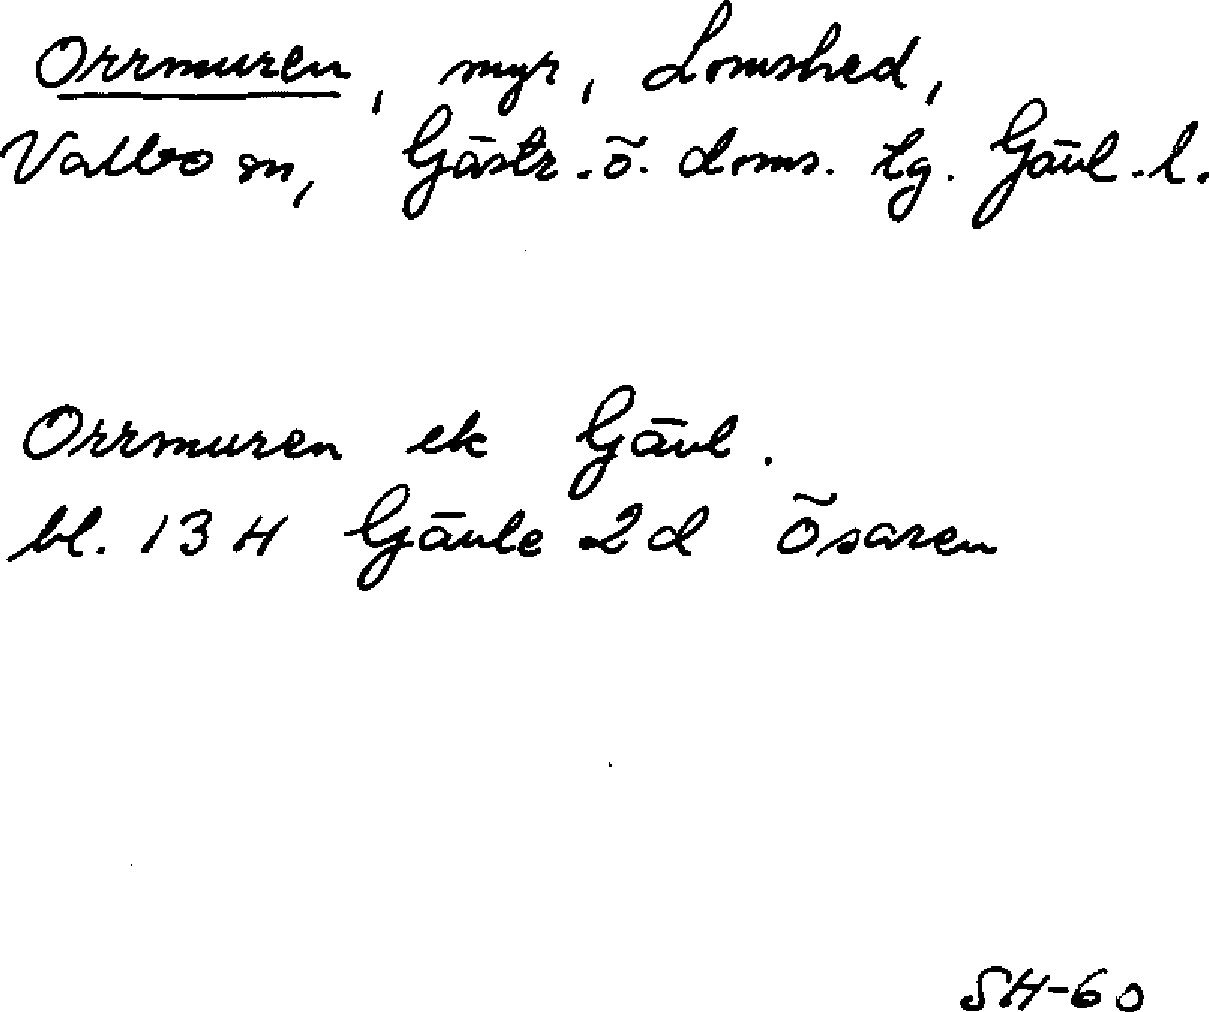 Orrmuren, myr, Lomshed,
Valbo sn, Gästr.ö. doms. tg. Gävl.l.
Orrmuren ek Gävl.
bl. 13 H Gävle 2d Ösaren
SH-60